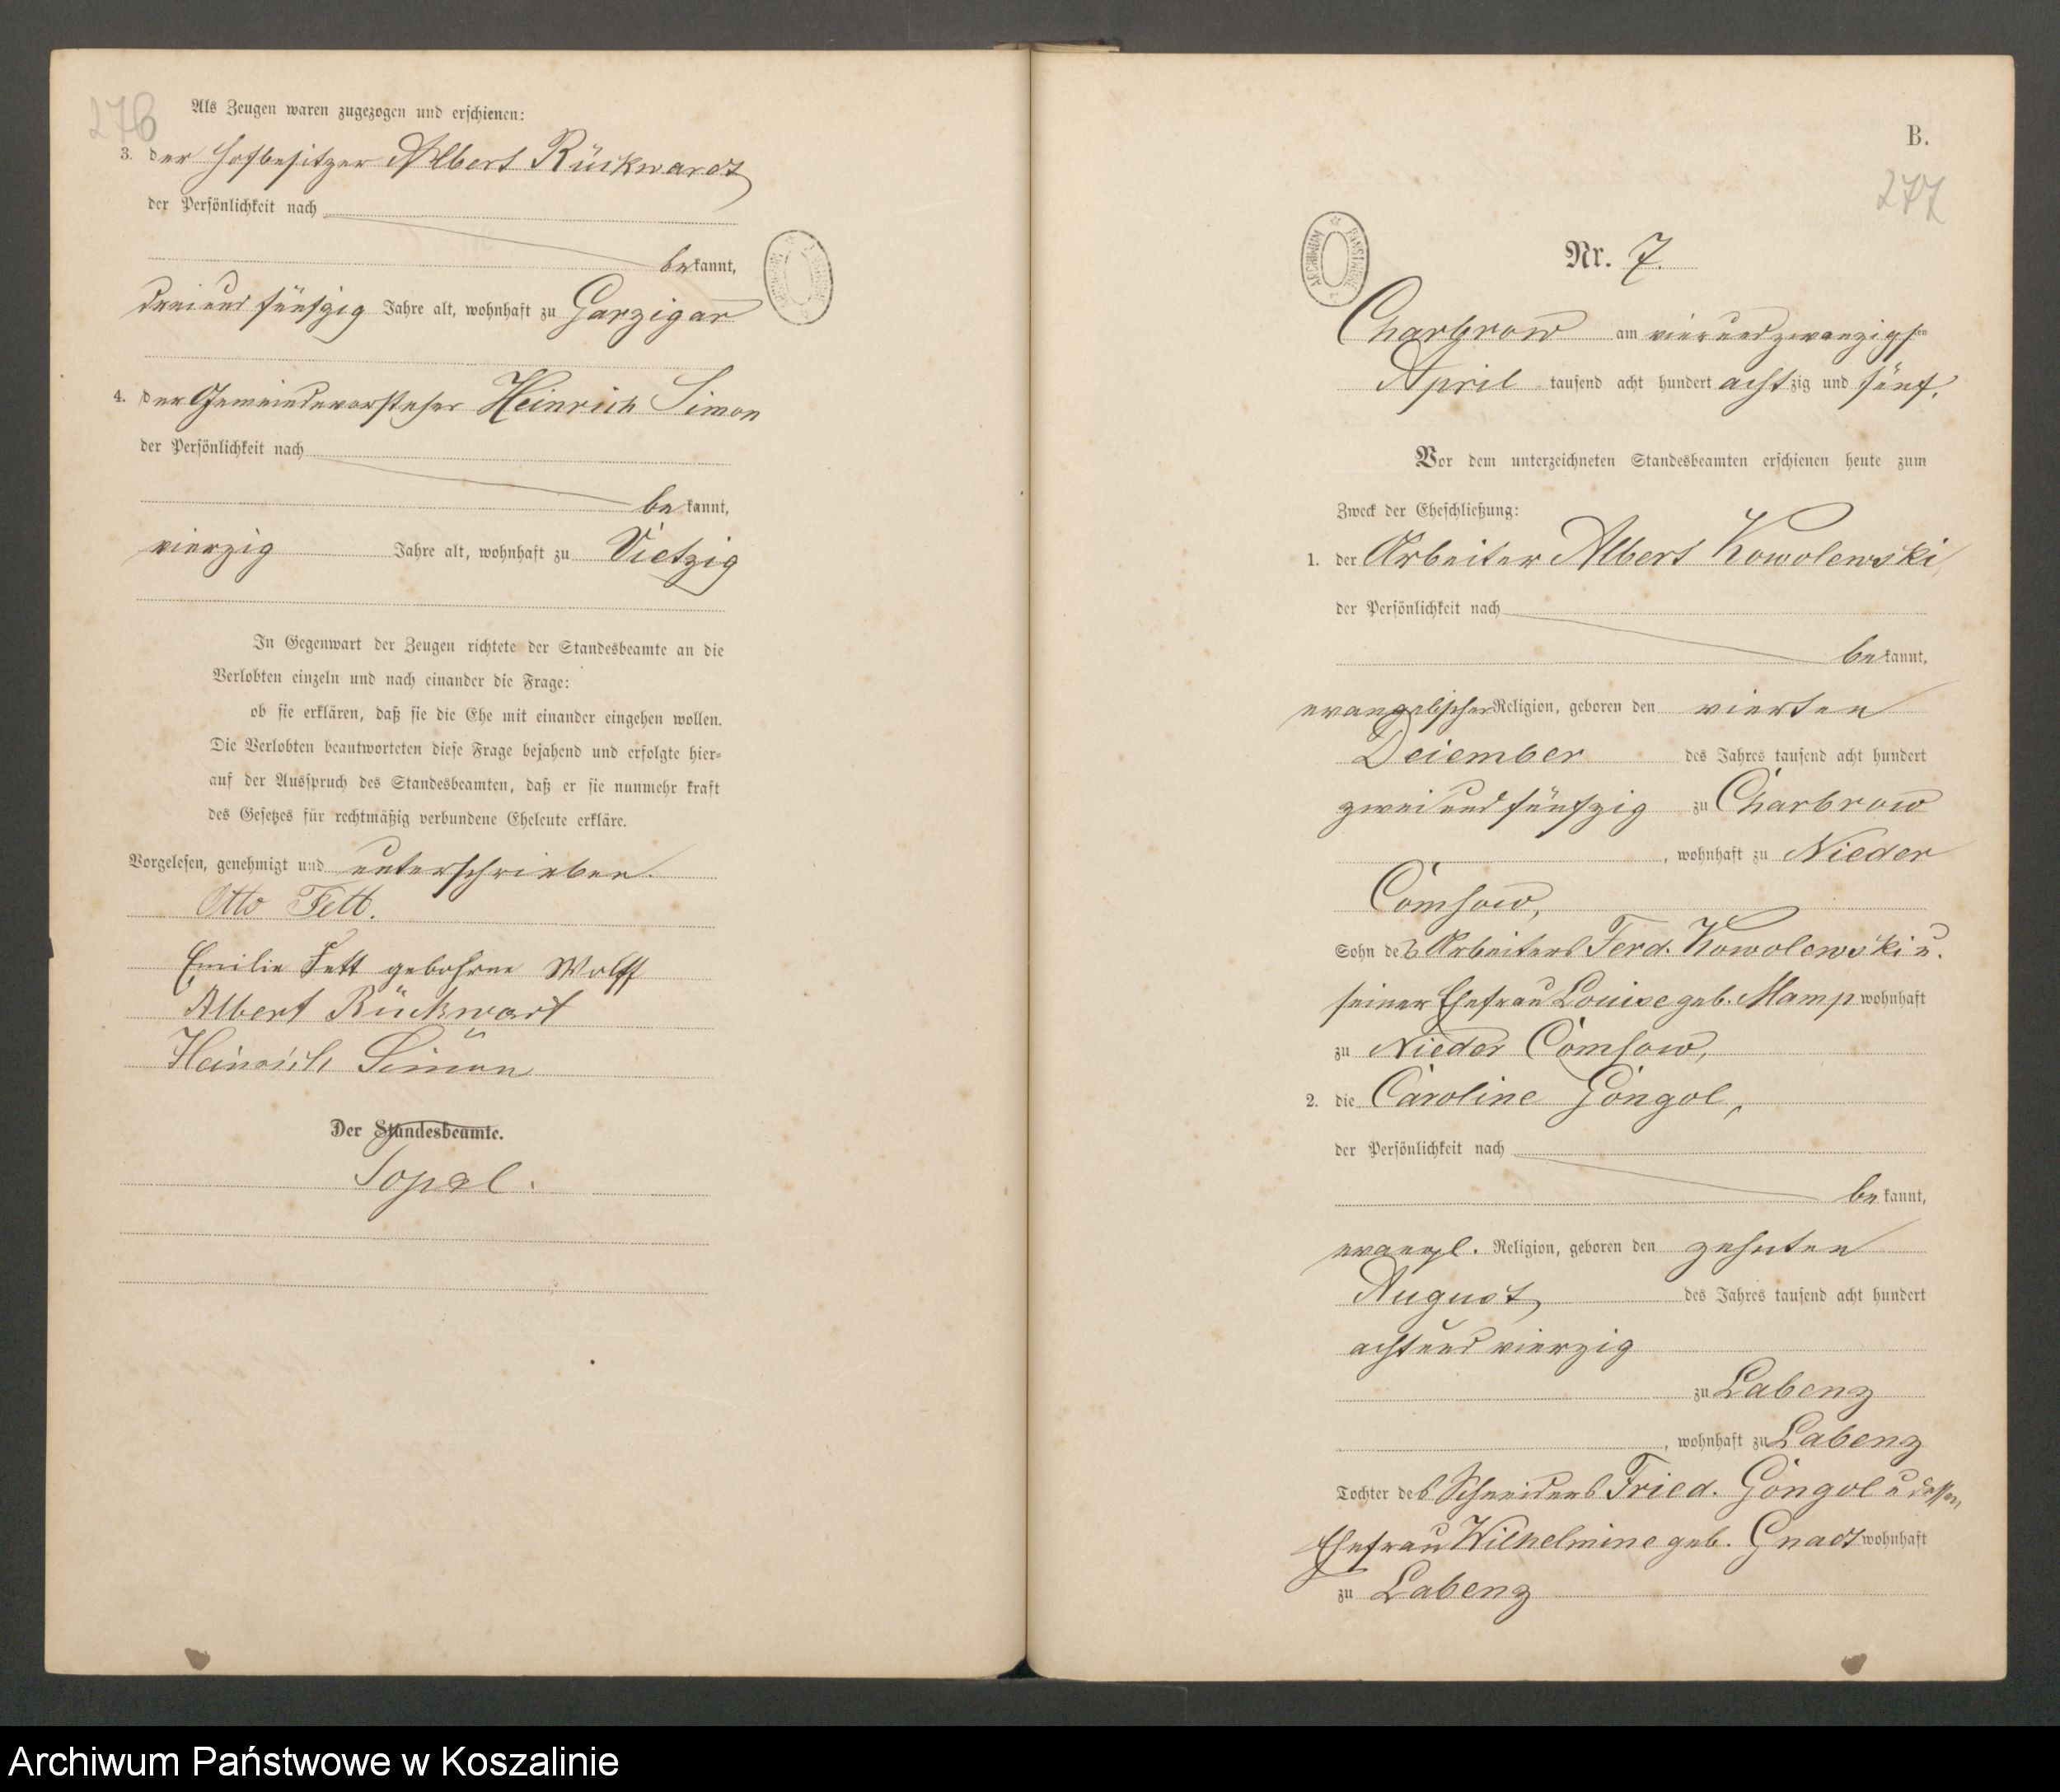 276
Als Zeugen waren zugezogen und erschienen:
3. der Hofbesitzer Albert Rückwardt
der Persönlichkeit nach
bekannt,
dreiundfünfzig Jahre alt, wohnhaft zu Garzigar
4. der Gemeindevorsteher Heinrich Simon
der Persönlichkeit nach
bekannt,
vierzig Jahre alt, wohnhaft zu Vietzig
In Gegenwart der Zeugen richtete der Standesbeamte an die
Verlobten einzeln und nach einander die Frage:
ob sie erklären, daß sie die Ehe mit einander eingehen wollen.
Die Verlobten beantworteten diese Frage bejahend und erfolgte hier-
auf der Ausspruch des Standesbeamten, daß er sie nunmehr kraft
des Gesetzes für rechtmäßig verbundene Eheleute erkläre.
Vorgelesen, genehmigt und unterschrieben.
Otto Fett.
Emilie Fett gebohrne Wolff
Albert Rückwart
Heinrich Simon
Der Standesbeamte.
B.
277
ARCHIWUM PAŃSTWOWE
Nr. 7.
Charbrow am vierundzwanzigsten
April tausend acht hundert achtzig und fünf.
Vor dem unterzeichneten Standesbeamten erschienen heute zum
Zweck der Eheschließung:
1. der Arbeiter Albert Kowolewski,
der Persönlichkeit nach
bekannt,
evangelischer Religion, geboren den vierten
Dezember des Jahres tausend acht hundert
zweiundfünfzig zu Charbrow
, wohnhaft zu Nieder
Comsow,
Sohn des Arbeiters Ferd. Kowolewski u.
seiner Ehefrau Louise geb. Mamp wohnhaft
zu Nieder Comsow,
2. die Caroline Gongol,
der Persönlichkeit nach
bekannt,
evangl. Religion, geboren den zehnten
August, des Jahres tausend acht hundert
achtundvierzig
zu Labenz
, wohnhaft zu Labenz
Tochter des Schneiders Fried. Gongol u dessen
Ehefrau Wilhelmine geb. Gnadt wohnhaft
zu Labenz
Archiwum Państwowe w Koszalinie